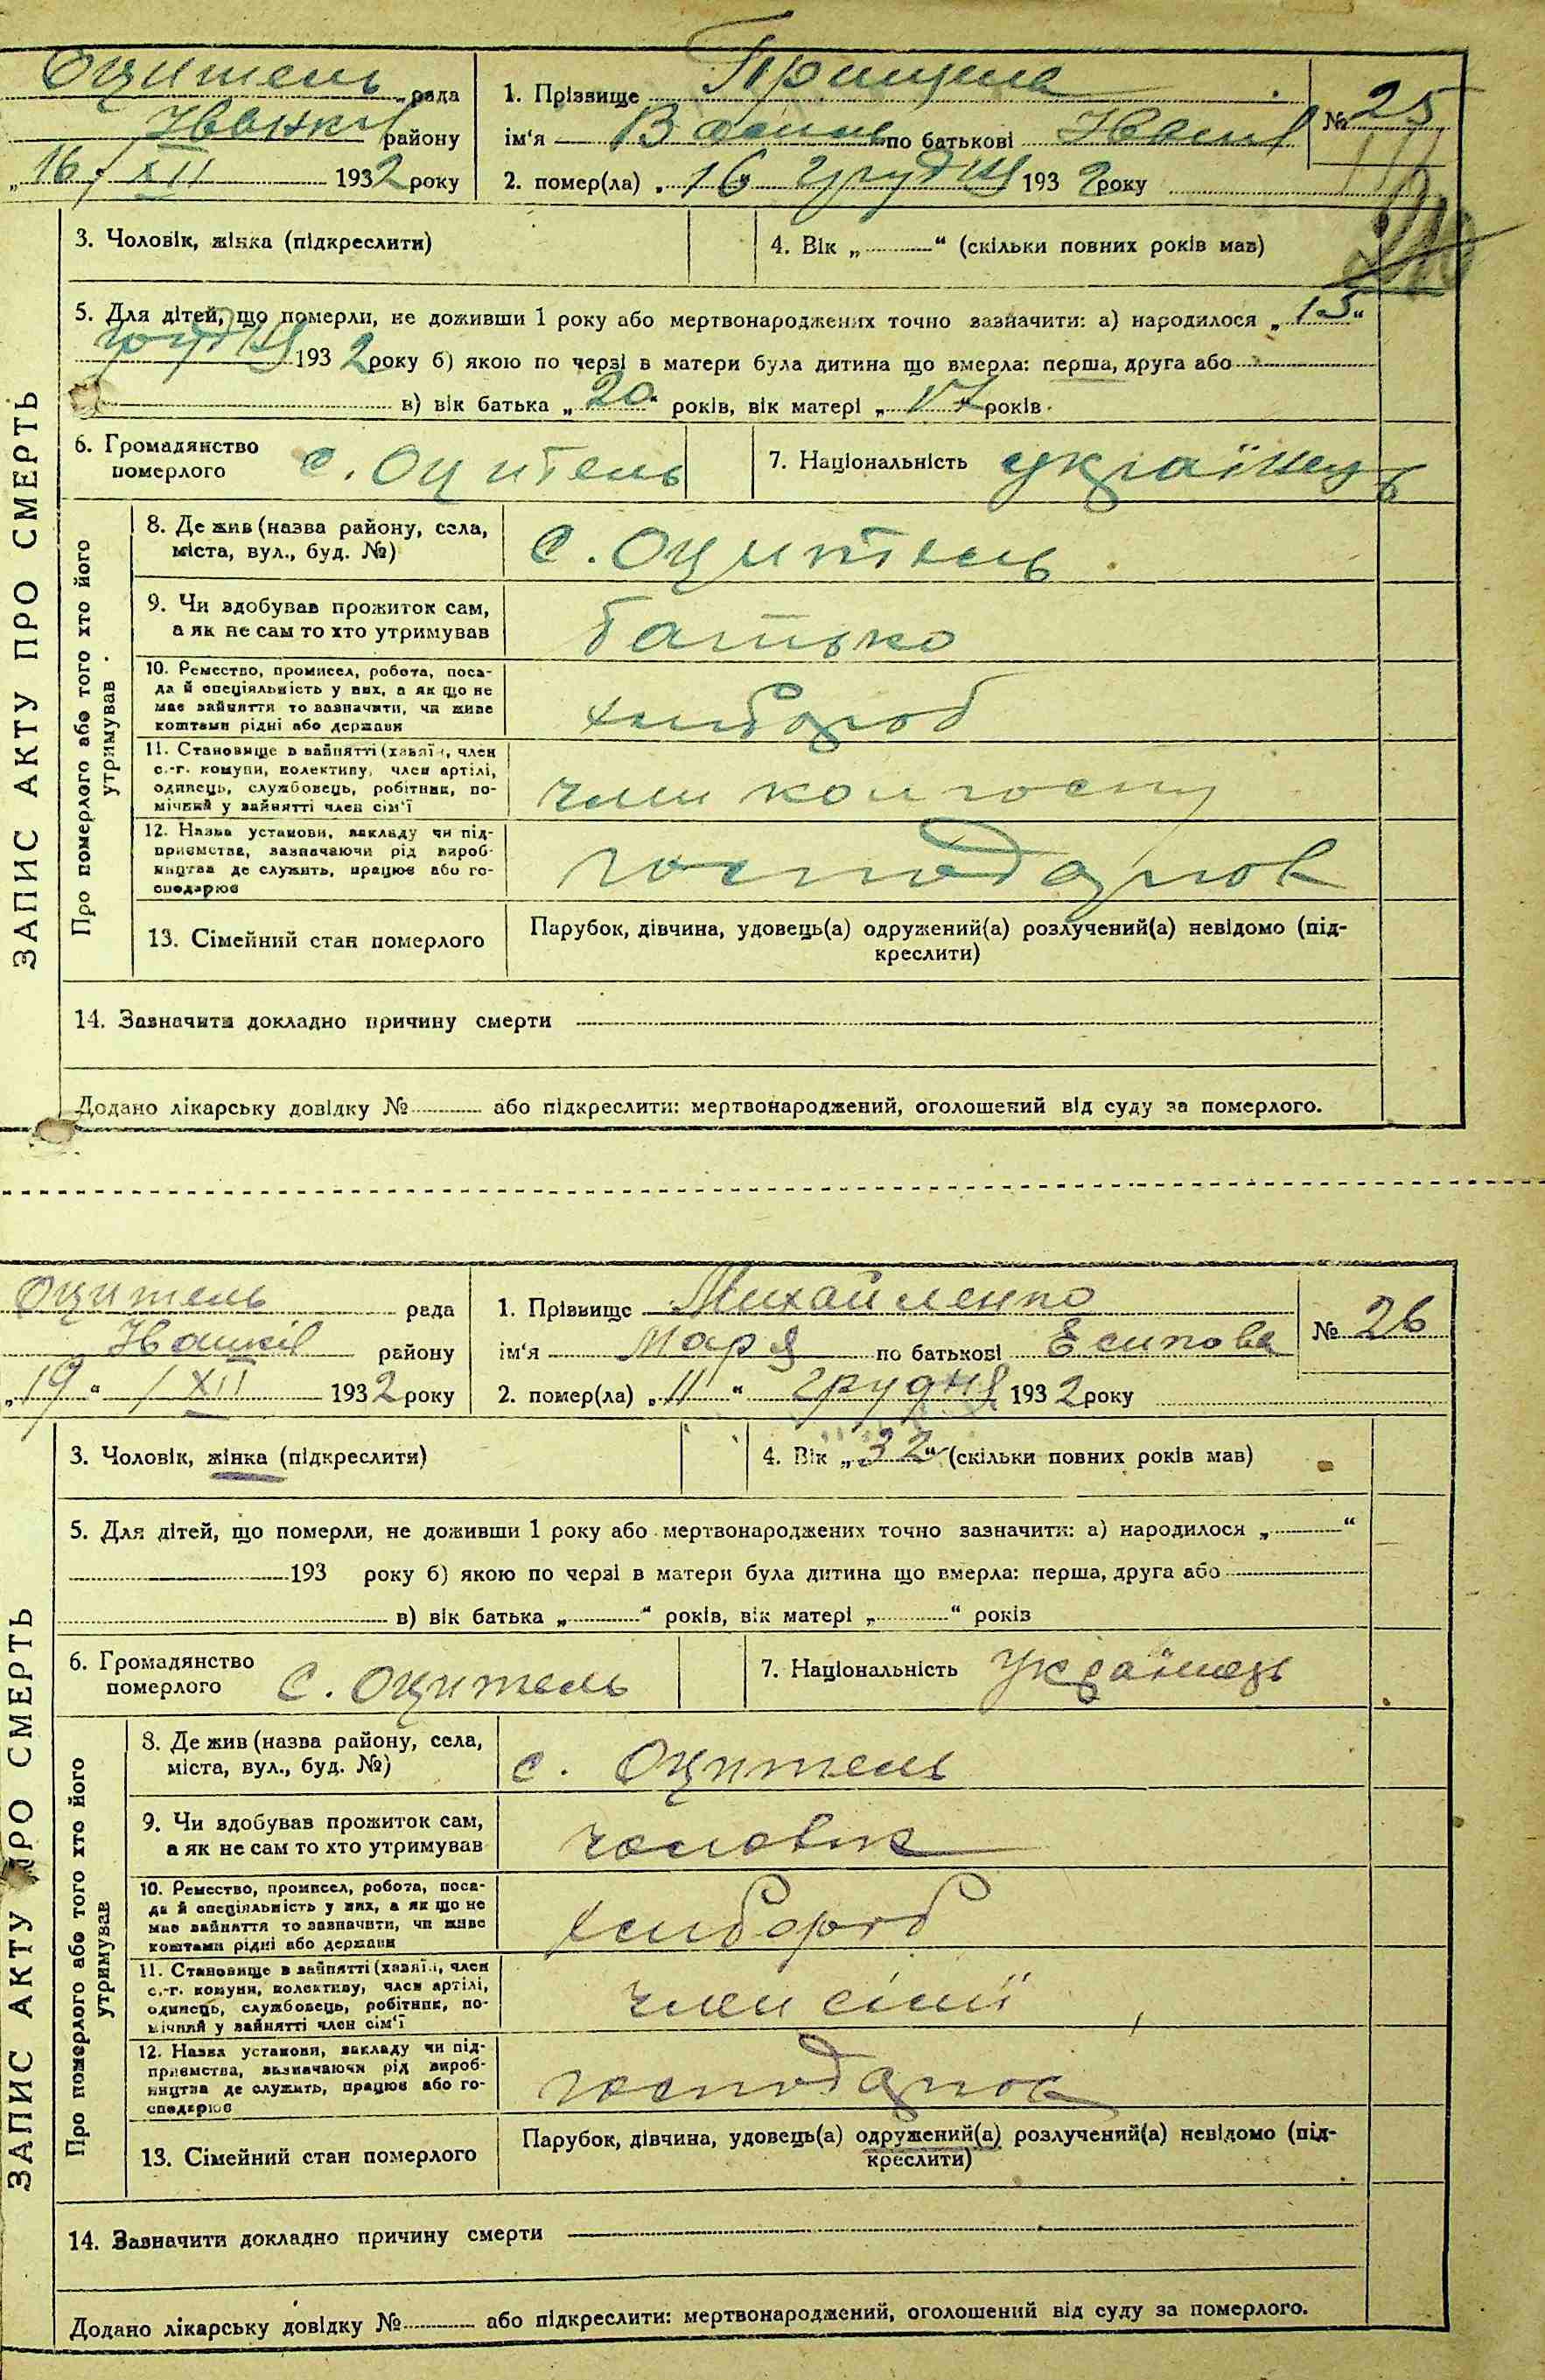 Оцитель рада
Іванків району
„16“ / XII 1932 року
1. Прізвище Грищенк
ім'я Василь по батькові Іванів
2. помер(ла) „16“ грудня 1932 року
№ 25
3. Чоловік, жінка (підкреслити)
4. Вік „ “ (скільки повних років мав)
5. Для дітей, що померли, не доживши 1 року або мертвонароджених точно зазначити: а) народилося „15“
грудня 1932 року б) якою по черзі в матери була дитина що вмерла: перша, друга або
в) вік батька „20“ років, вік матері „17“ років
6. Громадянство
померлого
с. Оцитель
7. Національність українець
ЗАПИС АКТУ ПРО СМЕРТЬ
Про померлого або того хто його
утримував
8. Де жив (назва району, села,
міста, вул., буд. №)
с. Оцитель
9. Чи здобував прожиток сам,
а як не сам то хто утримував
батько
10. Ремество, промисел, робота, поса-
да й спеціяльність у них, а як що не
має зайняття то зазначити, чи живе
коштами рідні або держави
хлібороб
11. Становище в зайнятті (хазяїн, член
с.-г. комуни, колективу, член артілі,
одинець, службовець, робітник, по-
мічний у зайнятті член сім'ї
член колгоспу
12. Назва установи, закладу чи під-
приємства, зазначаючи рід вироб-
ництва де служить, працює або го-
сподарює
господарював
13. Сімейний стан померлого
Парубок, дівчина, удовець(а) одружений(а) розлучений(а) невідомо (під-
креслити)
14. Зазначити докладно причину смерти
Додано лікарську довідку № або підкреслити: мертвонароджений, оголошений від суду за померлого.
Оцитель рада
Іванків району
„19“ / XII 1932 року
1. Прізвище Михайленко
ім'я Марія по батькові Есипова
2. помер(ла) „11“ грудня 1932 року
№ 26
3. Чоловік, жінка (підкреслити)
4. Вік „32“ (скільки повних років мав)
5. Для дітей, що померли, не доживши 1 року або мертвонароджених точно зазначити: а) народилося „ “
193 року б) якою по черзі в матери була дитина що вмерла: перша, друга або
в) вік батька „ “ років, вік матері „ “ років
6. Громадянство
померлого
с. Оцитель
7. Національність українець
ЗАПИС АКТУ ПРО СМЕРТЬ
Про померлого або того хто його
утримував
8. Де жив (назва району, села,
міста, вул., буд. №)
с. Оцитель
9. Чи здобував прожиток сам,
а як не сам то хто утримував
чоловік
10. Ремество, промисел, робота, поса-
да й спеціяльність у них, а як що не
має зайняття то зазначити, чи живе
коштами рідні або держави
хлібороб
11. Становище в зайнятті (хазяїн, член
с.-г. комуни, колективу, член артілі,
одинець, службовець, робітник, по-
мічний у зайнятті член сім'ї
член сімї
12. Назва установи, закладу чи під-
приємства, зазначаючи рід вироб-
ництва де служить, працює або го-
сподарює
господарює
13. Сімейний стан померлого
Парубок, дівчина, удовець(а) одружений(а) розлучений(а) невідомо (під-
креслити)
14. Зазначити докладно причину смерти
Додано лікарську довідку № або підкреслити: мертвонароджений, оголошений від суду за померлого.